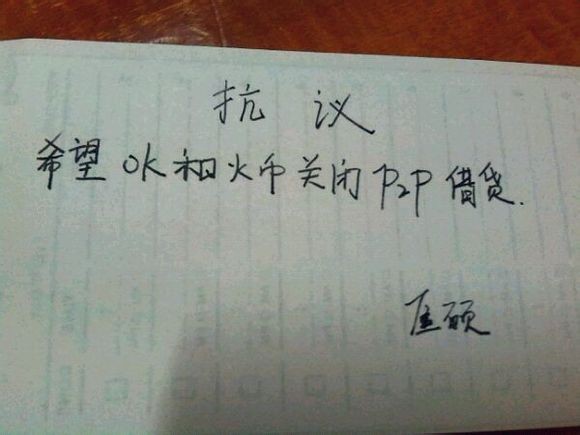 抗议
希望OK和火币关闭P2P借贷.